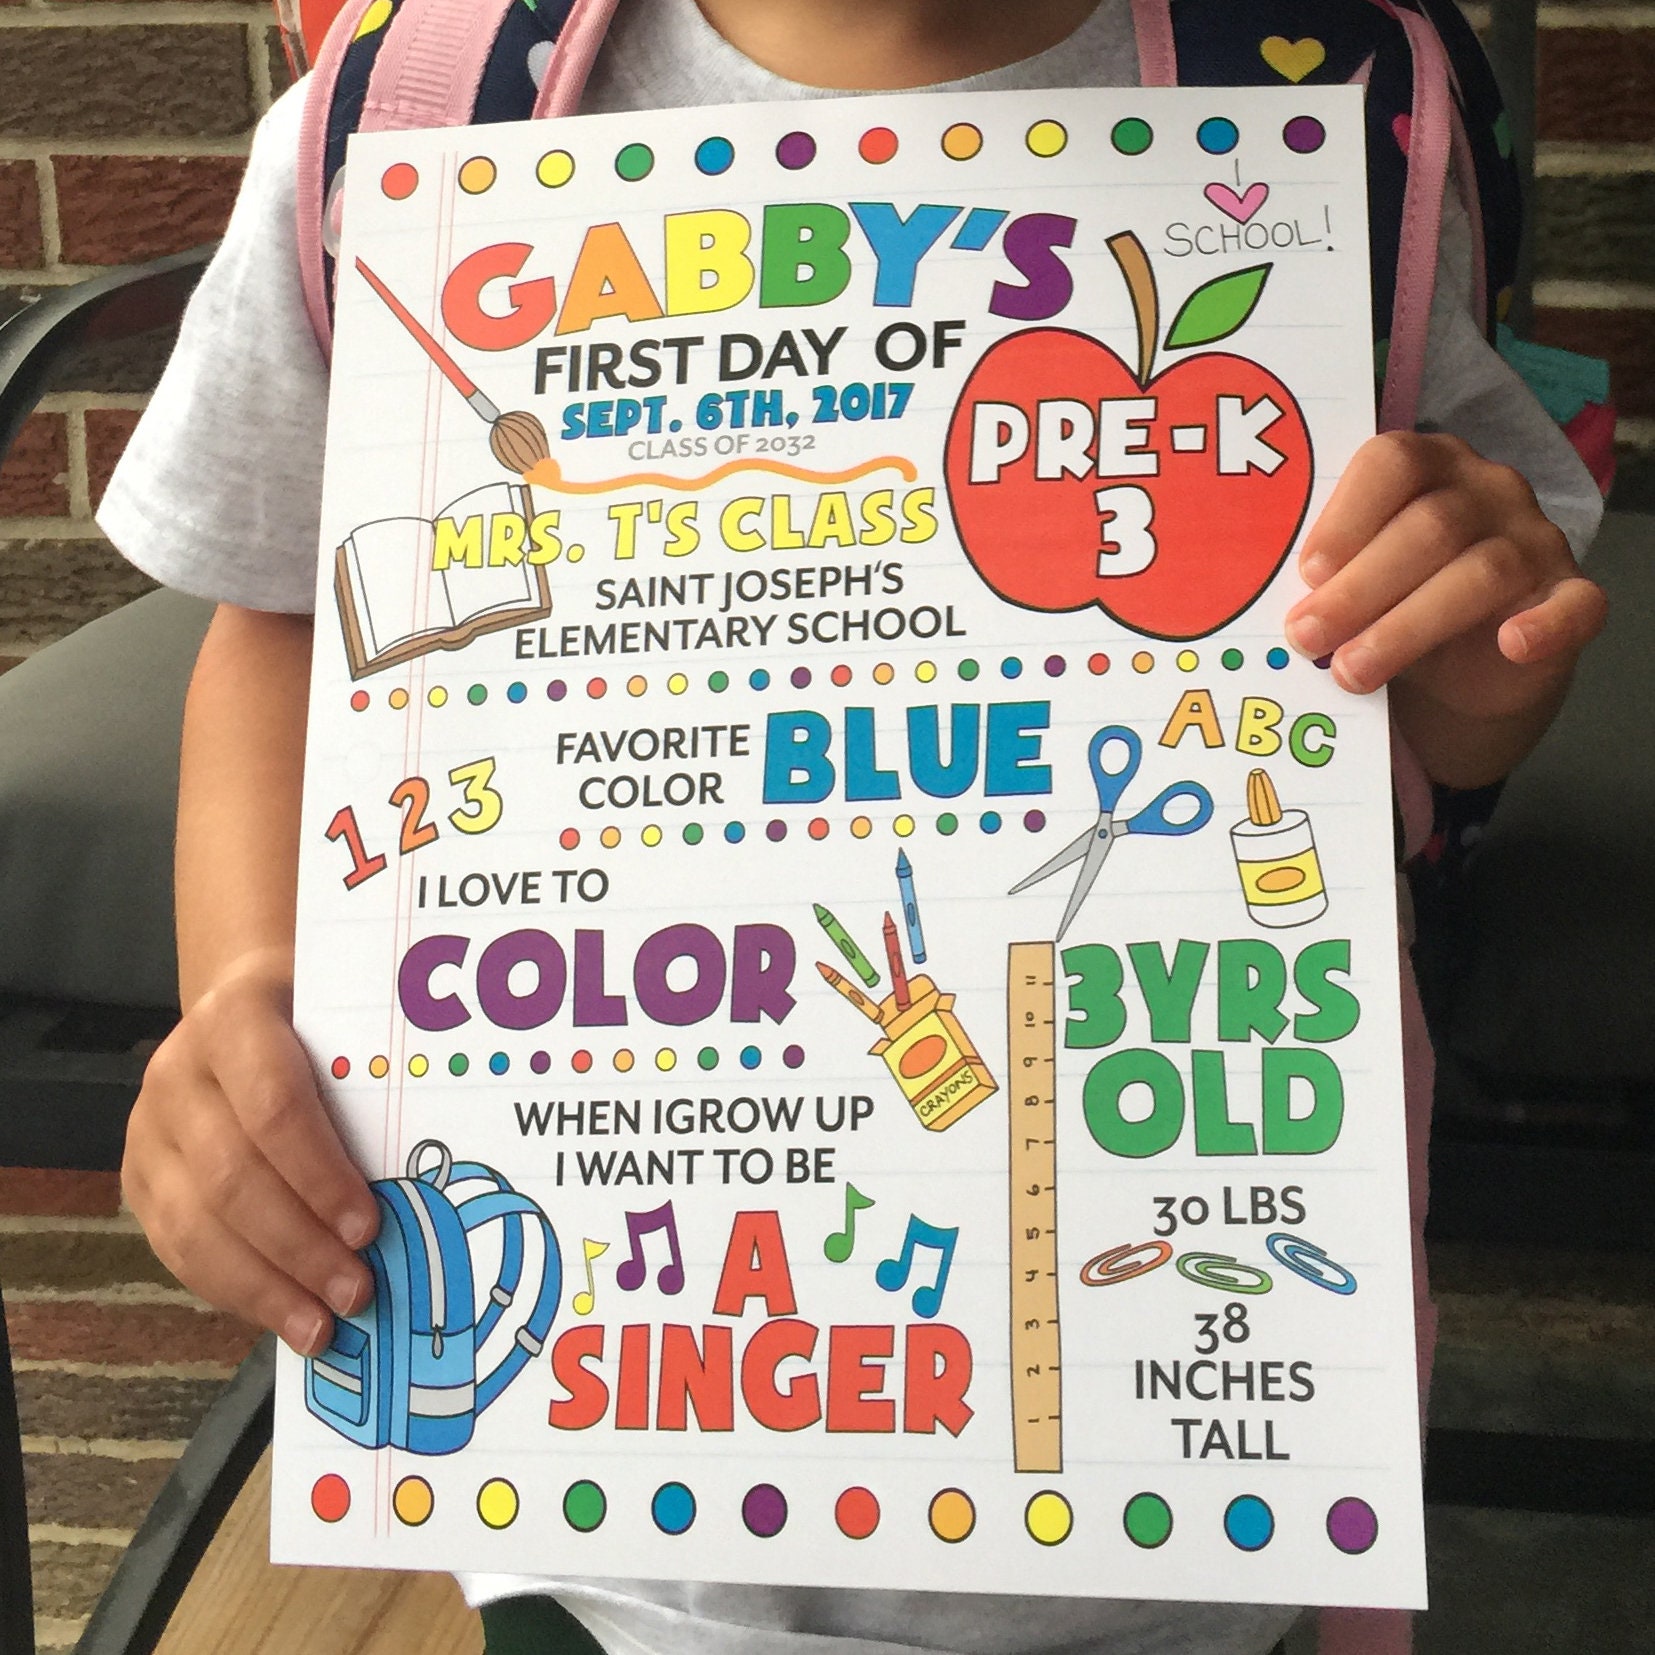 I ♥
SCHOOL!
GABBY'S
FIRST DAY OF
SEPT. 6TH, 2017
CLASS OF 2032
PRE-K
3
MRS. T'S CLASS
SAINT JOSEPH'S
ELEMENTARY SCHOOL
FAVORITE
COLOR
BLUE
ABC
123
I LOVE TO
COLOR
CRAYONS
WHEN I GROW UP
I WANT TO BE
A
SINGER
11
10
9
8
7
6
5
4
3
2
1
3YRS
OLD
30 LBS
38
INCHES
TALL